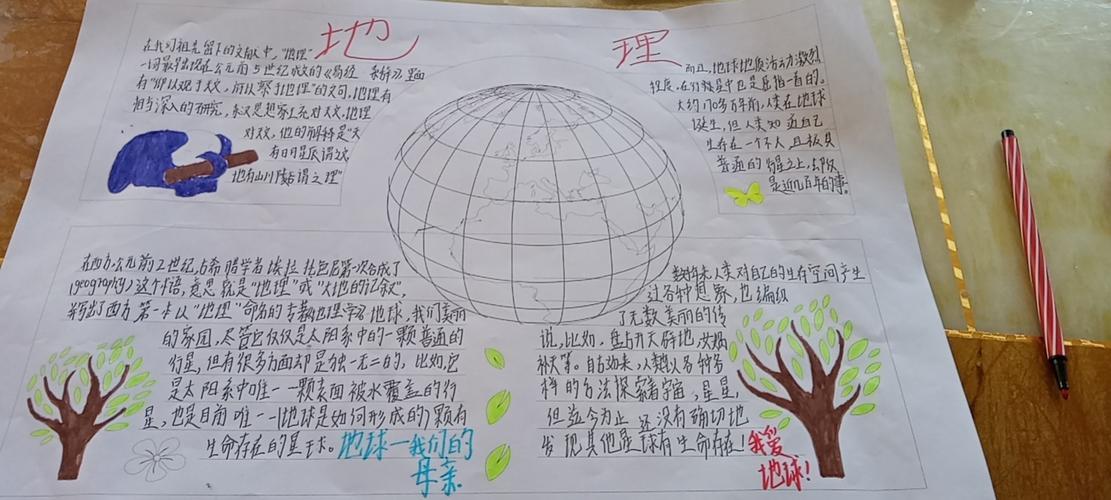 地理
在我们祖先留下的文献中，"地理"
一词最早出现在公元前5世纪成文的《易经 系辞》里面
有"仰以观于天文，俯以察于地理"的文句，地理有
相当深入的研究，东汉思想家王充对天文，地理
对文，他的解释是"天
有日月星辰谓之文
地有山川陵谷谓之理"
而且，地球地质活动激烈
程度，在行星中也是屈指一首的。
大约170多万年前，人类在地球
诞生，但人类知道自己
生存在一个不大且极其
普通的行星之上，却仅
是近几百年的事。
在西方公元前2世纪，古希腊学者埃拉托色尼第一次合成了
(geography)这个术语，意思就是"地理"或"大地的记叙"，
并写出了西方第一本以"地理"命名的专著地理学》地球，我们美丽
的家园，尽管它仅仅是太阳系中的一颗普通的
行星，但有很多方面却是独一无二的，比如，它
是太阳系中唯一一颗表面被水覆盖的行
星，也是目前唯一一(地球是如何形成的)颗有
生命存在的星球。地球一我们的
母亲
数千年来人类对自己的生存空间产生
过各种想象，也编织
了无数美丽的传
说，比如，盘古开天辟地，女娲
补天等。自古如来，人类以各种各
样的方法探索着宇宙，星星，
但迄今为止 还没有确切地
发现其他星球有生命存在！我爱
地球！